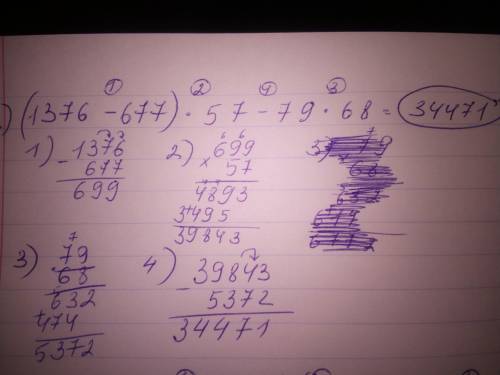 ① ② ④ ③
) (1376 - 677) · 57 - 79 · 68 = 34471
1) - 1376
677
699
2) × 699
57
4893
+ 3495
39843
3) 79
68
632
+ 474
5372
4) - 39843
5372
34471